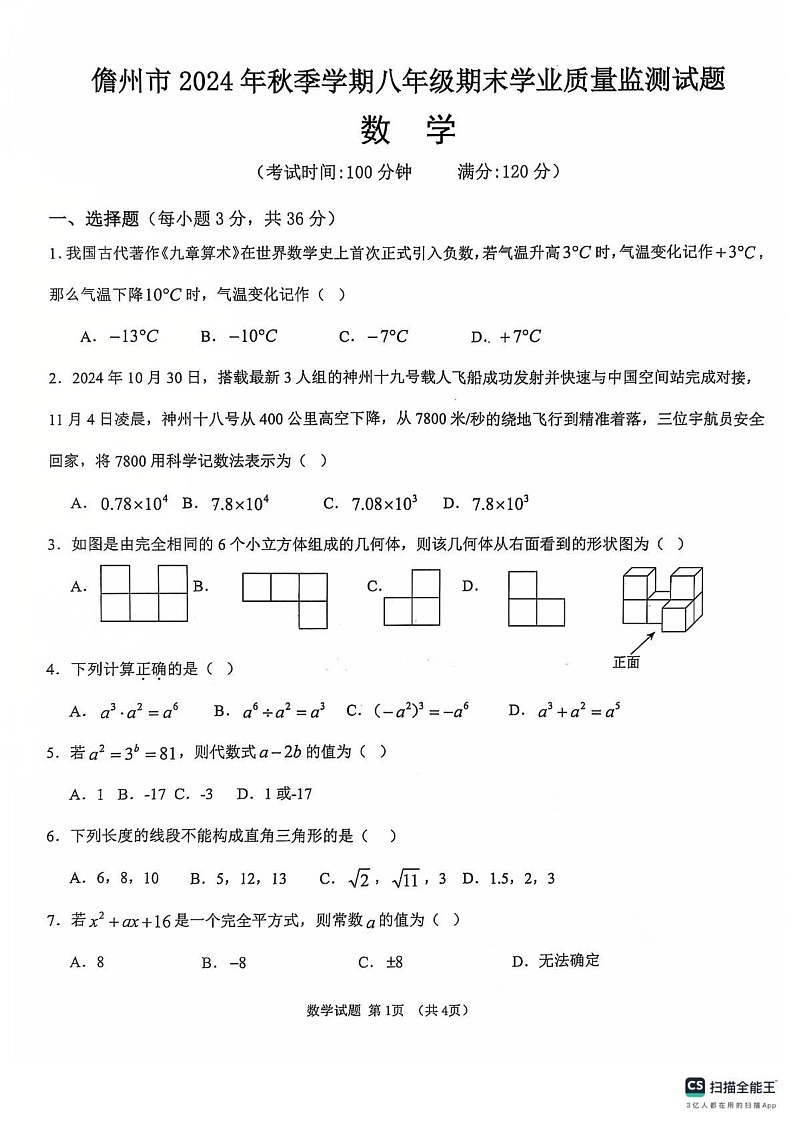 儋州市 2024 年秋季学期八年级期末学业质量监测试题
数 学
（考试时间:100 分钟 满分:120 分）
一、选择题（每小题 3 分，共 36 分）
1. 我国古代著作《九章算术》在世界数学史上首次正式引入负数，若气温升高 3°C 时，气温变化记作 +3°C，
那么气温下降10°C 时，气温变化记作（ ）
A. −13°C B. −10°C C. −7°C D. +7°C
2. 2024 年 10 月 30 日，搭载最新 3 人组的神州十九号载人飞船成功发射并快速与中国空间站完成对接，
11 月 4 日凌晨，神州十八号从 400 公里高空下降，从 7800 米/秒的绕地飞行到精准着落，三位宇航员安全
回家，将 7800 用科学记数法表示为（ ）
A. 0.78×10⁴ B. 7.8×10⁴ C. 7.08×10³ D. 7.8×10³
3. 如图是由完全相同的 6 个小立方体组成的几何体，则该几何体从右面看到的形状图为（ ）
A. B. C. D.
正面
4. 下列计算正确的是（ ）
A. a³·a²=a⁶ B. a⁶÷a²=a³ C. (−a²)³=−a⁶ D. a³+a²=a⁵
5. 若 a²=3ᵇ=81，则代数式 a−2b 的值为（ ）
A. 1 B. -17 C. -3 D. 1 或-17
6. 下列长度的线段不能构成直角三角形的是（ ）
A. 6，8，10 B. 5，12，13 C. √2，√11，3 D. 1.5，2，3
7. 若 x²+ax+16 是一个完全平方式，则常数 a 的值为（ ）
A. 8 B. −8 C. ±8 D. 无法确定
数学试题 第 1页 （共 4页）
CS 扫描全能王™
3亿人都在用的扫描App